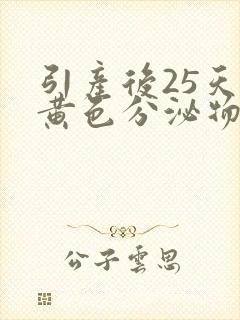 引产後25天
黄色分泌物
公子雲思